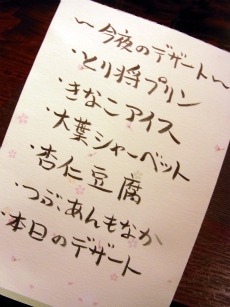 ～今夜のデザート～
・とり将プリン
・きなこアイス
・大葉シャーベット
・杏仁豆腐
・つぶあんもなか
・本日のデザート